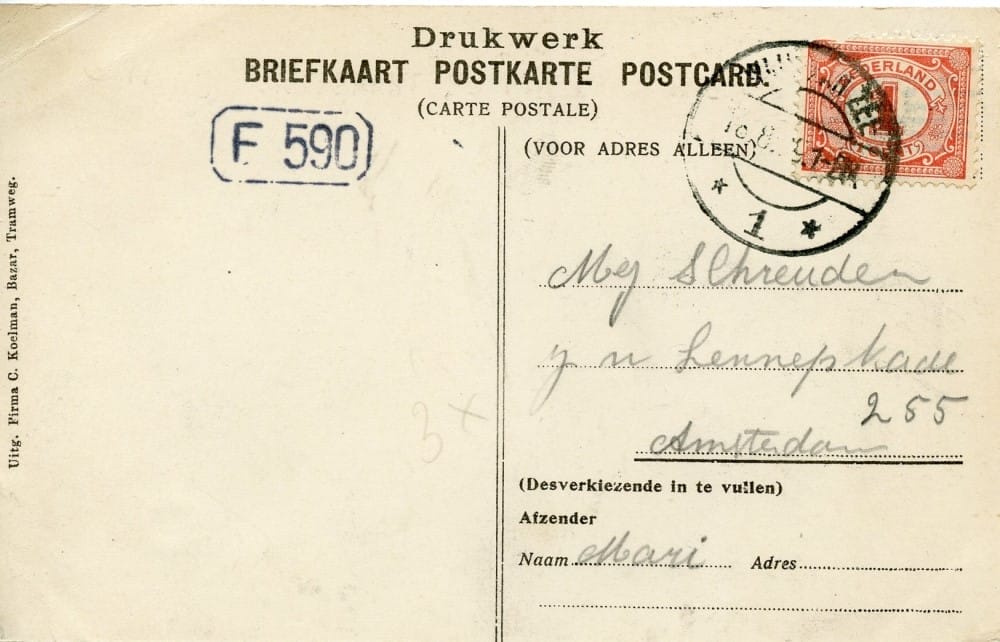 Drukwerk
BRIEFKAART POSTKARTE POSTCARD.
(CARTE POSTALE)
F 590
(VOOR ADRES ALLEEN)
NEDERLAND
1
1
Mej Schreuder
J v Lennepkade
255
Amsterdam
(Desverkiezende in te vullen)
Afzender
Naam Mari Adres
Uitg. Firma C. Koelman, Bazar, Tramweg.